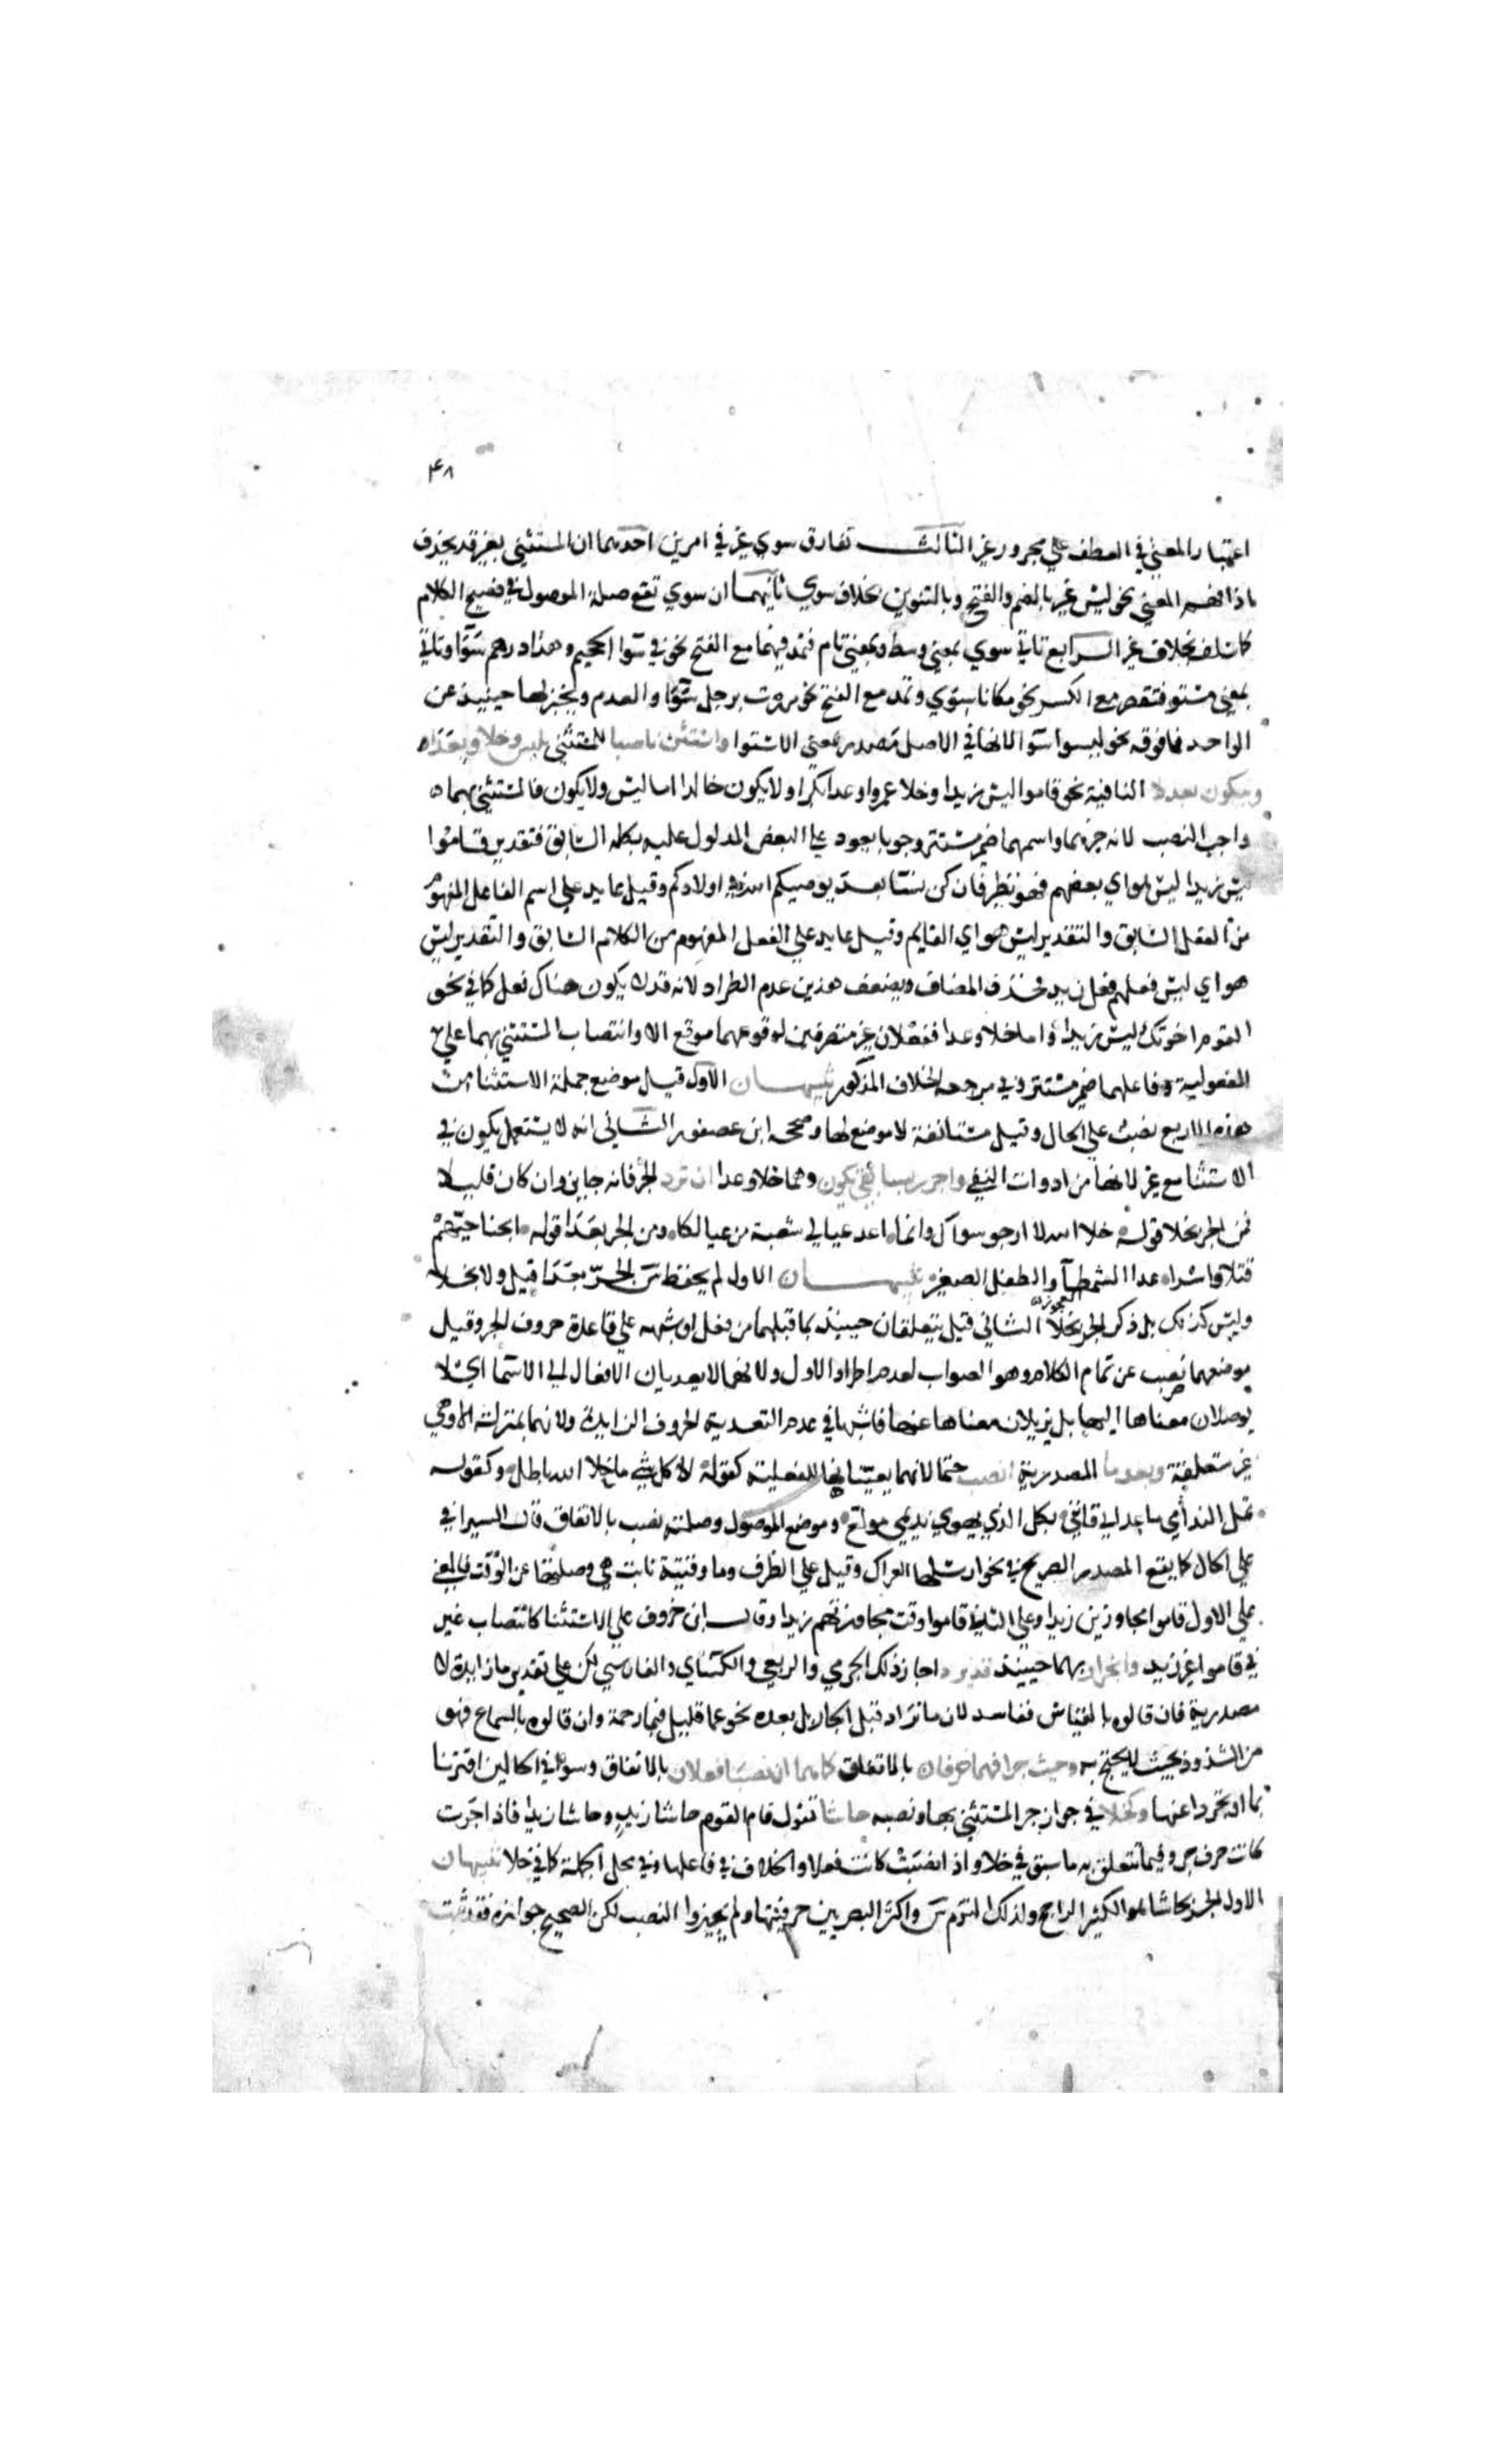 ۴۸
اعتبار المعني في العطف علي مجرور غير الثالث تفارق سوي غير في امرين احدهما ان المستثني بغير قد يحذف
اذا فهم المعني نحو ليس غير بالضم والفتح وبالتنوين بخلاف سوي ثانيهما ان سوي تقع صلة الموصول في فصيح الكلام
كما سلف بخلاف غير الرابع تاتي سوي بمعني وسط وبمعني تام فتمد فيهما مع الفتح نحو في سوا الجحيم وهذا درهم سوا وتاتي
بمعني مستو فتقصر مع الكسر نحو مكانا سوي وتمد مع الفتح نحو مررت برجل سوا والعدم ويخبر بها حينيذ عن
الواحد فما فوقه نحو ليسوا سوا لانها في الاصل مصدر بمعني الاستوا واستثن ناصبا بليس وخلا وبعدا
وبيكون بعد لا النافية نحو قاموا ليس زيدا وخلا عمروا وعدا بكرا ولا يكون خالدا اما ليس ولا يكون فالمستثني بهما
واجب النصب لانه خبرهما واسمهما ضمير مستتر وجوبا يعود علي البعض المدلول عليه بكله السابق فتقدير قاموا
ليس زيدا ليس هو اي بعضهم فهو نظير فان كن نسا بعد يوصيكم الله في اولادكم وقيل عايد علي اسم الفاعل المفهوم
من الفعل السابق والتقدير ليس هو اي القايم وقيل عايد علي الفعل المفهوم من الكلام السابق والتقدير ليس
هو اي ليس فعلهم فعل زيد فحذف المضاف ويضعف هذين عدم الطراد لانه قد لا يكون هناك فعل كما في نحو
القوم اخوتك ليس زيدا واما خلا وعدا ففعلان غير متصرفين لوقوعهما موقع الا وانتصاب المستثني بهما علي
المفعولية وفاعلهما ضمير مستتر وفي مرجعه الخلاف المذكور تنبيهان الاول قيل موضع جملة الاستثنا من
هذه الاربع نصب علي الحال وقيل مستانفة لا موضع لها وصححه ابن عصفور الثاني انه لا يستعمل يكون في
الاستثنا مع غير لا نها من ادوات النفي واجرر بسابقي يكون وهما خلا وعدا ان ترد الجر فانه جايز وان كان قليلا
فمن الجر بخلا قوله خلا الله لا ارجو سواك وانما اعد عيالي شعبة من عيالكا ومن الجر بعدا قوله ابحنا حيهم
قتلا واسرا عدا الشمطا والطفل الصغير تنبيهان الاول لم يحفظ س الجر بعدا قيل ولا بخلا
وليس كذلك بل ذكر الجر بخلا الثاني قيل يتعلقان حينيذ بما قبلهما من فعل او شبهه علي قاعدة حروف الجر وقيل
موضعهما نصب عن تمام الكلام وهو الصواب لعدم اطراد الاول ولانهما لا يعديان الافعال الي الاسما اي لا
يوصلان معناها اليها بل يزيلان معناها عنها فاشبها في عدم التعدية الحروف الزايدة ولانهما بمنزلة الا وهي
غير متعلقة وبعد ما المصدرية انصب حتما لانهما تعينتا بها للفعلية كقوله الا كل شي ما خلا الله باطل وكقوله
تمل الندامي ما عداني فانني بكل الذي يهوي نديمي مولع وموضع الموصول وصلته نصب بالاتفاق قال السيرافي
علي الحال كما يقع المصدر الصريح في نحو ارسلها العراك وقيل علي الظرف وما وقتية نابت هي وصلتها عن الوقت فالمعني
علي الاول قاموا مجاوزين زيدا وعلي الثاني قاموا وقت مجاوزتهم زيدا وقال ابن خروف علي الاستثنا كانتصاب غير
في قاموا غير زيد وانجرار بهما حينيذ قد يرد اجاز ذلك الجرمي والربعي والكسائي والفارسي لكن علي تقدير ما زايدة لا
مصدرية فان قالوه بالقياس ففاسد لان ما تزاد قبل الجار بل بعده نحو عما قليل فبما رحمة وان قالوه بالسماع فهو
من الشذوذ بحيث لا يحتج به وحيث جرا فهما حرفان بالاتفاق كما هما ان نصبا فعلان بالاتفاق وسوا في الحالين اقترنا
بما او تجردا عنها وكخلا في جواز جر المستثني بها ونصبه حاشا تقول قام القوم حاشا زيد وحاشا زيدا فاذا جرت
كانت حرف جر وفيما تتعلق به ما سبق في خلا واذا نصبت كانت فعلا والخلاف في فاعلها وفي محل الجملة كما في خلا تنبيهان
الاول الجر بحاشا هو الكثير الراجح ولذلك التزم س واكثر البصريين حرفيتها ولم يجيزوا النصب لكن الصحيح جوازه فقد ثبت